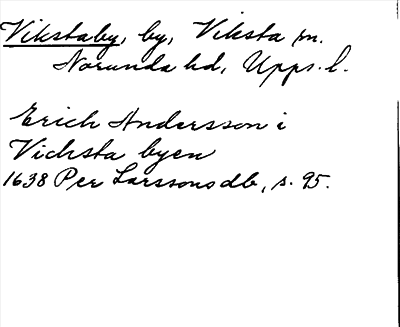 Vikstaby, by, Viksta sn.
Norunda hd, Upps. l.
Erich Andersson i
Vichsta byen
1638 Per Larssons db, s. 95.